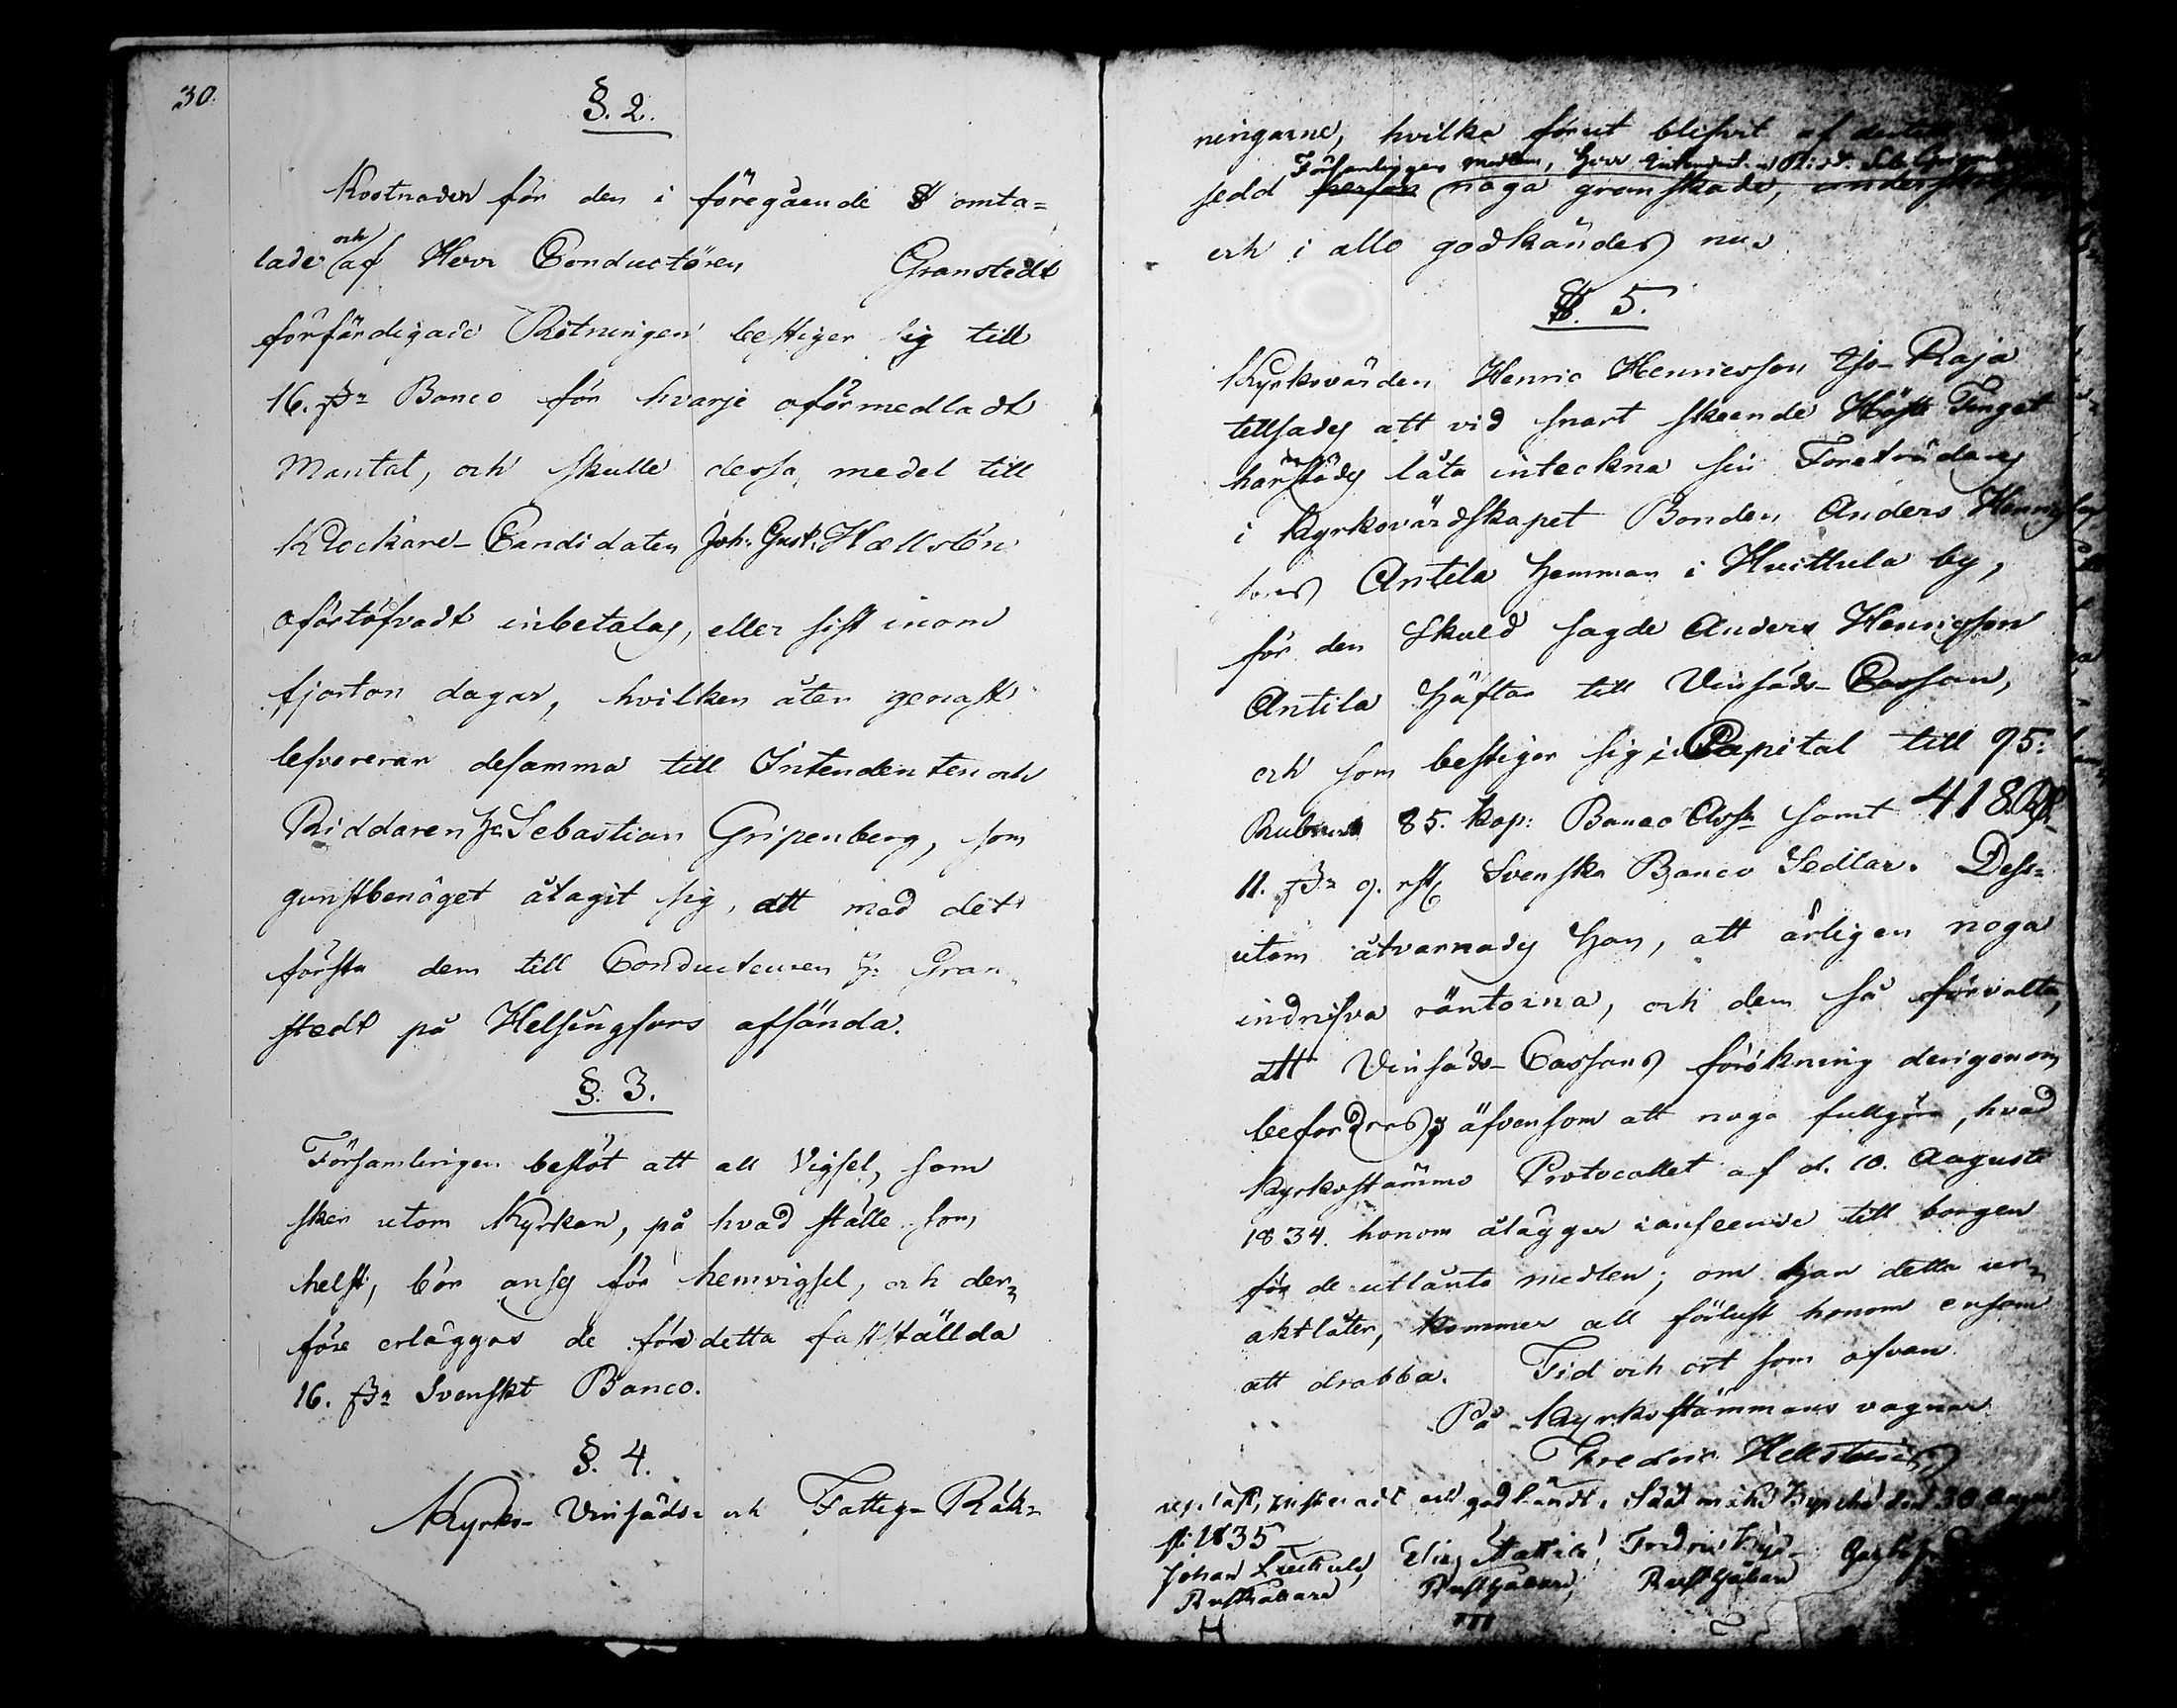 30.
§. 2.
Kostnaden för den i föregående § omta=
lade och af Herr Conductören Granstedt
förfärdigade Ritningen bestiger sig till
16. Banco för hvarje oförmedladt
Mantal, och skulle dessa medel till
Klockare-Candidaten Joh: Gust: Hællstén
oförtöfvadt inbetalas, eller sist inom
fjorton dagar, hvilken åter genast
lefvererar desamma till Intendenten och
Riddaren Hr Sebastian Gripenberg, som
gunstbenäget åtagit sig, att med det
första dem till Conducteuren H: Gran=
stedt på Helsingfors afsända.
§. 3.
Församlingen beslöt att all Vigsel, som
sker utom Kyrkan, på hvad ställe som
helst, bör anses för hemvigsel, och der=
före erläggas de för detta fastställda
16. Svenskt Banco.
§. 4.
Kyrko- Vinsäds- och Fattig- Räk=
ningarne, hvilka förut blifvit af dertill
Församlingens medlem, Herr Intendent
sedd person noga granskade,
och i allo godkändes nu
§. 5.
Kyrkovärden Henric Henricsson Raja
tillsades att vid snart skeende Höste Tinget
härstädes låta inteckna sin Företrädares
i Kyrkovärdskapet Bonden Anders Henrics
Antila Hemman i Huittula by,
för den Skuld sagde Anders Henricsson
Antila häftar till Vinsäds-Cassan,
och som bestiger sig i Capital till 95:
Rubel 85. kop: Banco Ass: samt 418
11. 9. rst Svenska Banco Sedlar. Dess=
utom åtvarnades han, att årligen noga
indrifva räntorna, och dem så förvalta,
att Vinsäds-Cassans förökning derigenom
befordras, äfvensom att noga fullgöra, hvad
Kyrkostämmo Protocollet af d. 10. Augusti
1834. honom ålägger i anseende till borgen
för de utlånta medlen; om han detta ur=
aktlåter, kommer all förlust honom ensam
att drabba. Tid och ort som ofvan
På Kyrkostämmans vägnar
Fredric Hellstenius
uppläst, justeradt och godkändt. Sääxmäki Kyrcka den 30 Augu
sti 1835
Johan Elias Mattila, Fredric
Rusthållare Rusthållare, Rusthållare